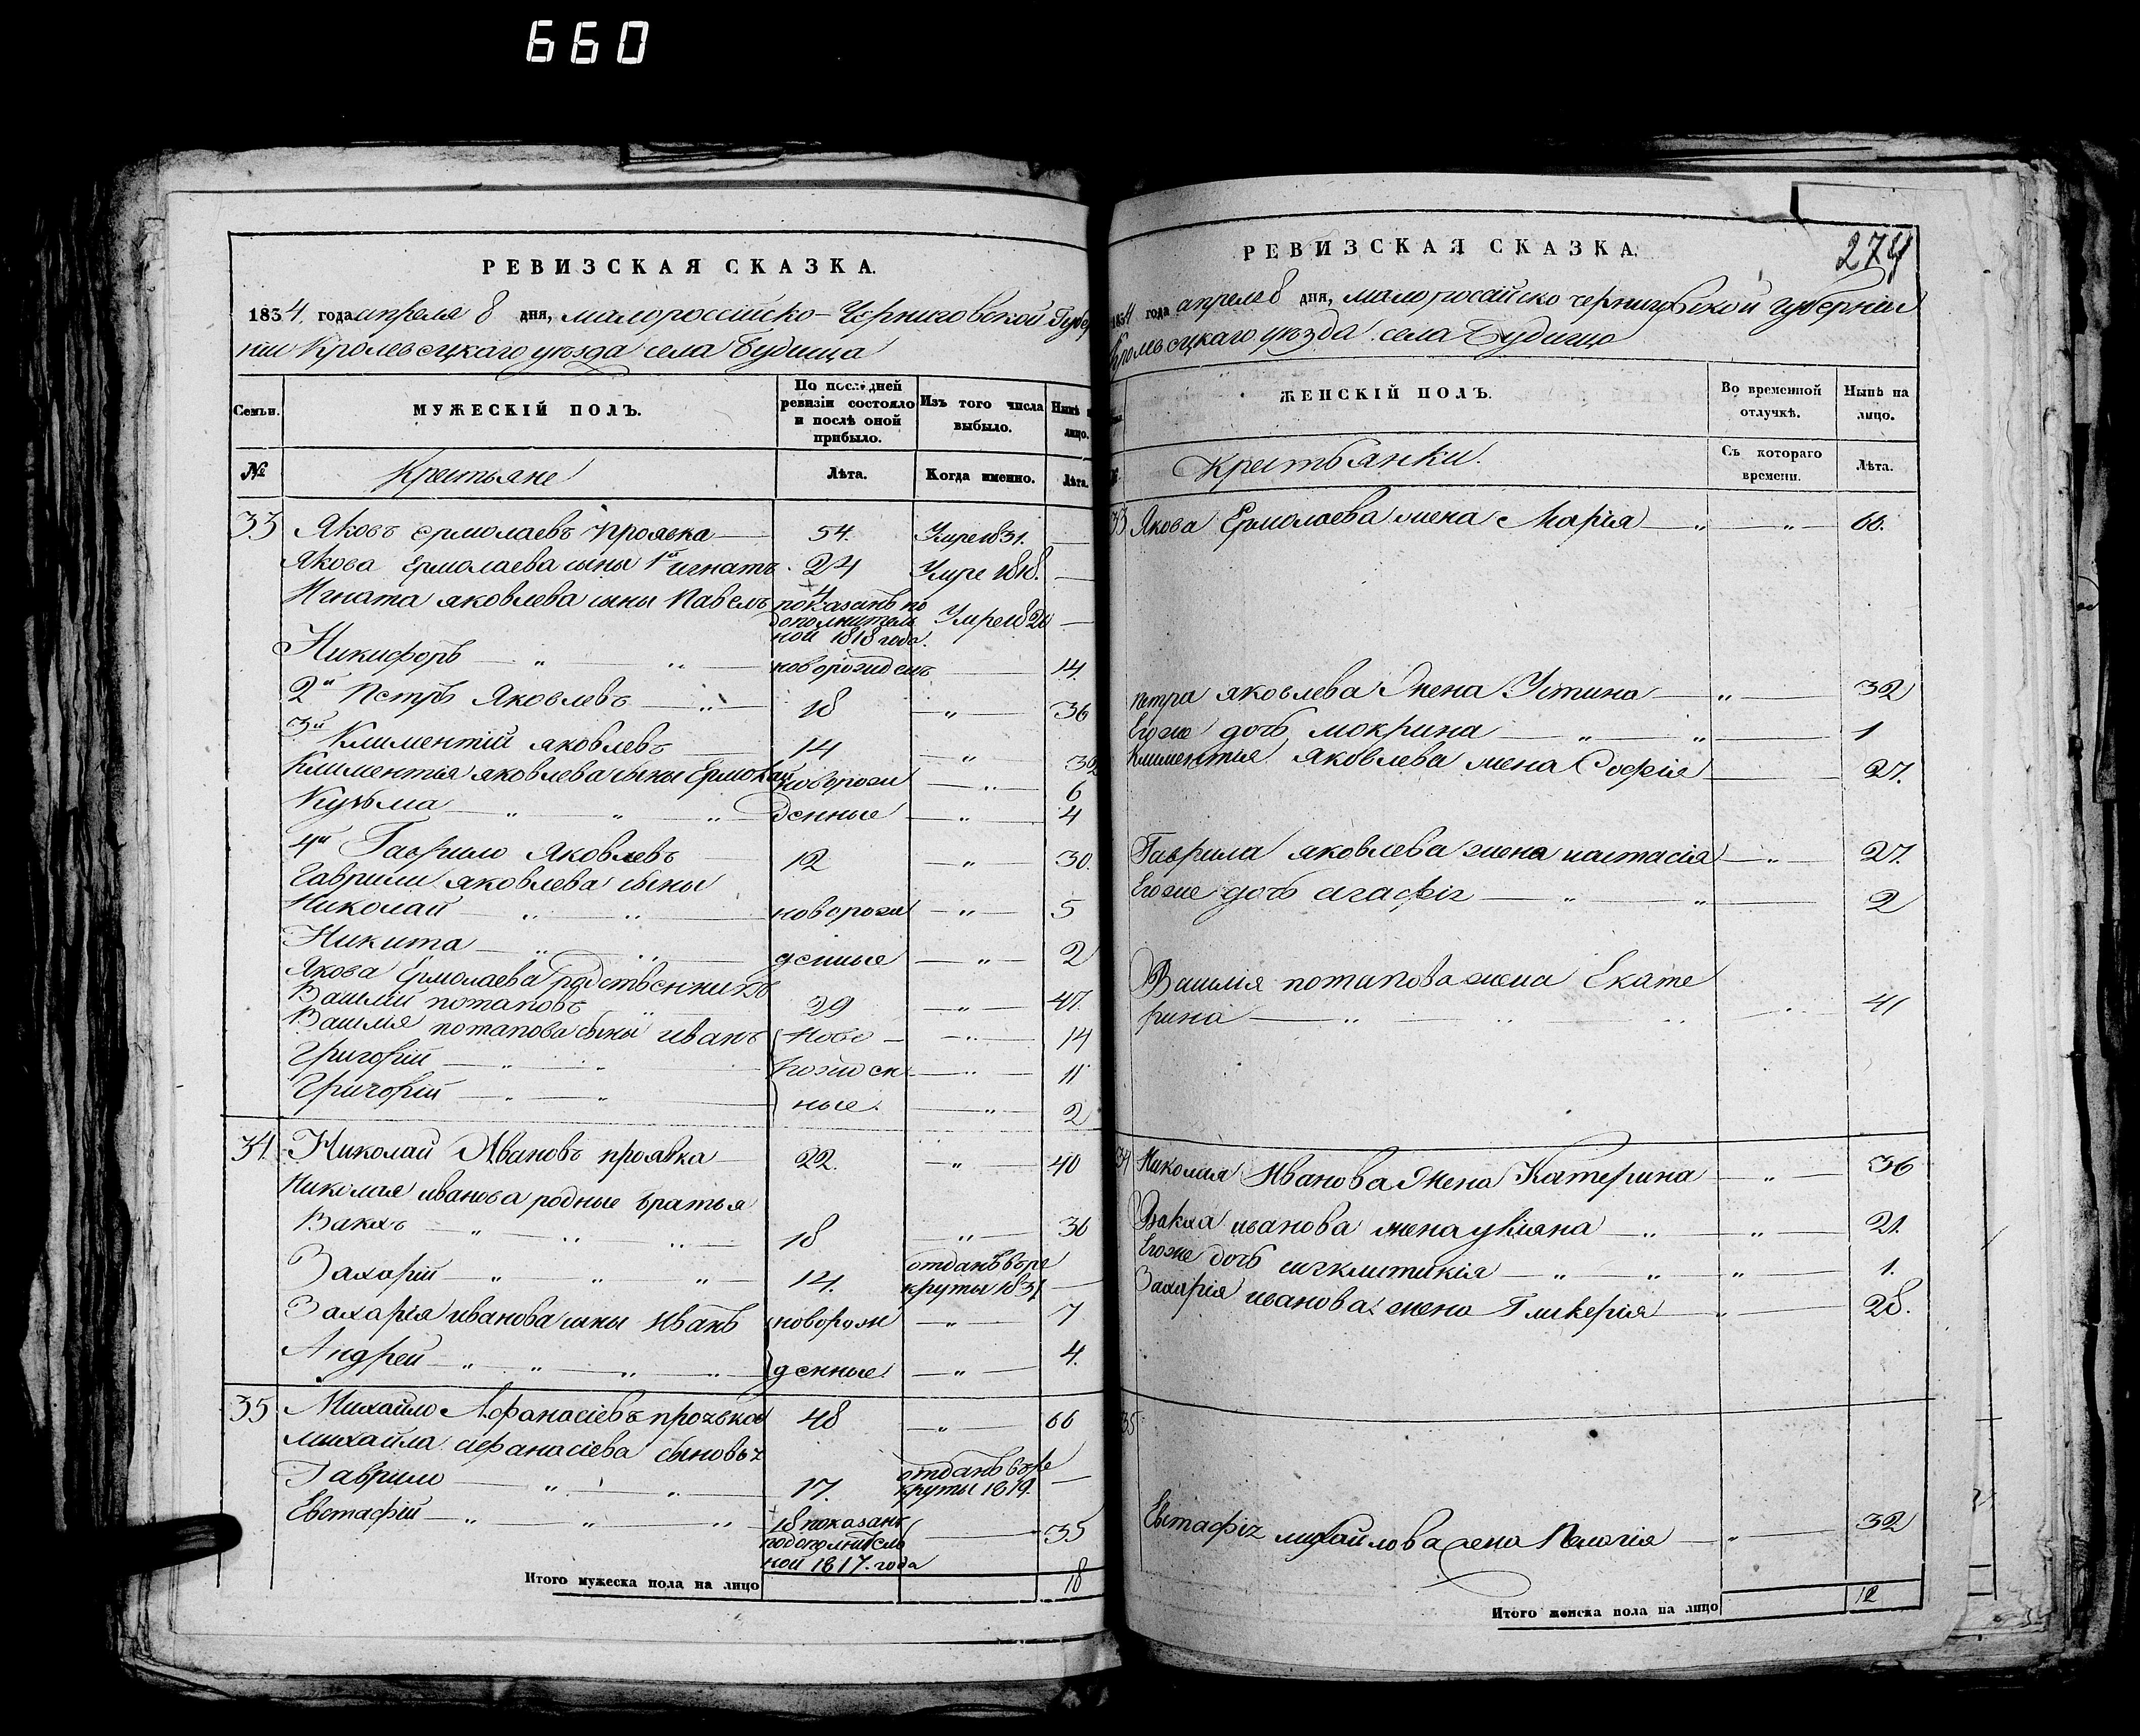 660
РЕВИЗСКАЯ СКАЗКА.
1834 года апреля 8 дня, малороссийско-Черниговской Губер
нии Кролевецкаго уезда села Будища
Семьи.
МУЖЕСКІЙ ПОЛЪ.
По последней ревизіи состояло и послѣ оной прибыло.
Изъ того числа выбыло.
Нынѣ на лицо.
№ Крестьяне Лѣта. Когда именно. Лѣта.
33 Яковъ Ермолаевъ Проявка 54. Умре 1831. —
Якова Ермолаева сыны 1й игнатъ 24 Умре 1818. —
Игната яковлева сыны Павелъ 4 показанъ по дополнитель ной 1818 года. Умре 182 —
Никифоръ — „ „ — новорожденъ — 14.
2й Петръ Яковлевъ — „ — 18 — „ — 36
3й Климентій яковлевъ — 14 — „ — 32
Климентія яковлева сыны Ермолай новорож — „ — 6
Кузьма — „ „ „ денные — „ — 4
4й Гаврило Яковлевъ 12 — „ — 30.
Гаврили яковлева сыны
Николай — „ „ — новорож — „ — 5
Никита — „ „ — денные — „ — 2
Якова Ермолаева родственникъ
Василій потаповъ 29 — „ — 47.
Василія потапова сыны иванъ Ново — „ — 14
Григорій — „ „ — рожден — „ — 11
Григорій — „ — „ — ные. — „ — 2
34 Николай Ивановъ проявка 22. — „ — 40
Николая иванова родные братья
Вакхъ — „ „ „ — 18 — „ — 36
Захарій — „ „ „ 14. отданъ въ ре круты 1831 —
Захарія иванова сыны Иванъ новорож — „ — 7
Андрей — „ „ „ „ — денные — „ — 4.
35 Михайло Афанасіевъ 48 — „ — 66
михайла афанасіева сыновья
Гаврило — „ „ — 17. отданъ въ ре круты 1819. —
Евстафій — „ „ „ — 18 показанъ по дополнитель ной 1817. года — 35
Итого мужеска пола на лицо 18
274
РЕВИЗСКАЯ СКАЗКА.
1834 года апреля 8 дня, малоросийско черниговской губерніи
Кролевецкаго уезда села Будища
ЖЕНСКІЙ ПОЛЪ.
Во временной отлучкѣ.
Нынѣ на лицо.
Крестьянки. Съ котораго времени. Лѣта.
33 Якова Ермолаева жена Марія — „ — „ — 66.
петра яковлева Жена Устина — „ — 32
Егоже дочь мокрина — „ — „ — 1
Климентія яковлева жена Софія — 27.
Гаврила яковлева жена настасія — „ — 27.
Егоже дочь агафія — „ — „ — 2
Василія потапова жена Екате
рина — „ „ „ „ — 41
34 Николая Иванова Жена Катерина — „ — 36
Вакха иванова жена уліяна — „ — „ — 21.
Егоже дочь синклитикія — „ — „ — „ — 1.
Захарія иванова жена Гликерія — „ — 28.
35
Евстафія михайлова жена Пелагія — „ — 32
Итого женска пола на лицо 12